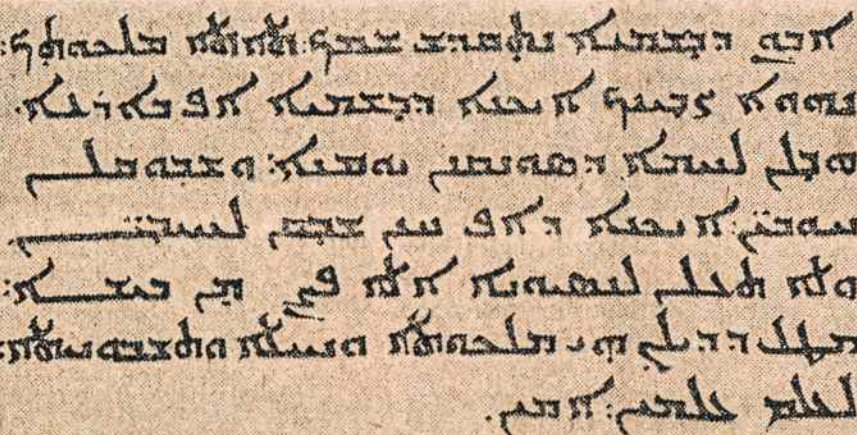 ܐܒܘܢ ܕܒܫܡܝܐ ܢܬܩܕܫ ܫܡܟ܆ ܬܐܬܐ ܡܠܟܘܬܟ܆
ܢܗܘܐ ܨܒܝܢܟ ܐܝܟܢܐ ܕܒܫܡܝܐ ܐܦ ܒܐܪܥܐ.
ܗܒ ܠܢ ܠܚܡܐ ܕܣܘܢܩܢܢ ܝܘܡܢܐ܆ ܘܫܒܘܩ ܠܢ
ܚܘܒܝ̈ܢ܆ ܐܝܟܢܐ ܕܐܦ ܚܢܢ ܫܒܩܢ ܠܚܝܒܝ̈ܢ
ܘܠܐ ܬܥܠܢ ܠܢܣܝܘܢܐ ܐܠܐ ܦܨܢ ܡܢ ܒܝܫܐ܆
ܡܛܠ ܕܕܝܠܟ ܗܝ ܡܠܟܘܬܐ ܘܚܝܠܐ ܘܬܫܒܘܚܬܐ܆
ܠܥܠܡ ܥܠܡܝܢ܆ ܐܡܝܢ.